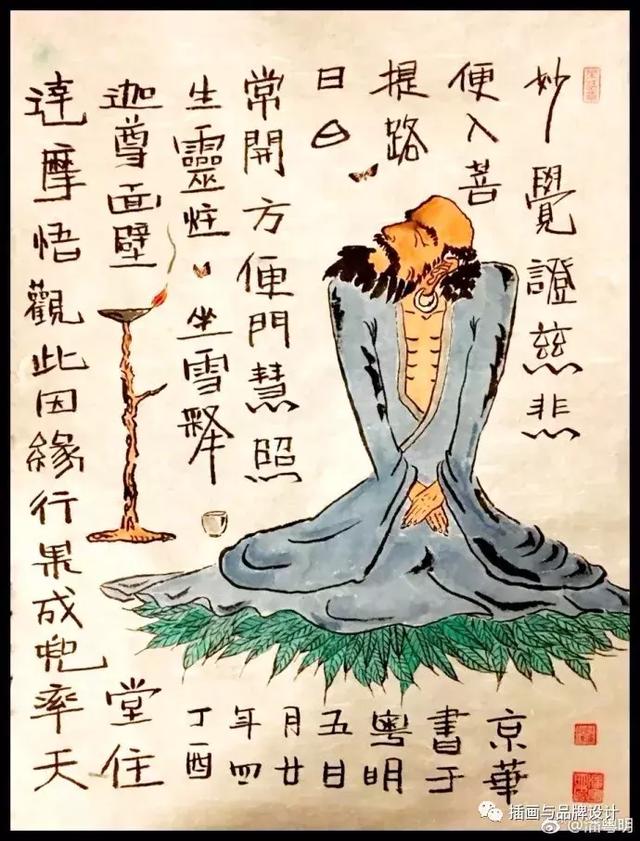 妙覺證慈悲
便入菩
提路
日
常開方便門慧照
生靈炷坐雪釋
迦尊面壁
達摩悟觀此因緣行果成兜率天
堂住
丁酉
年四
月廿
五日
粵明
書于
京華
插画与品牌设计
@潘粤明